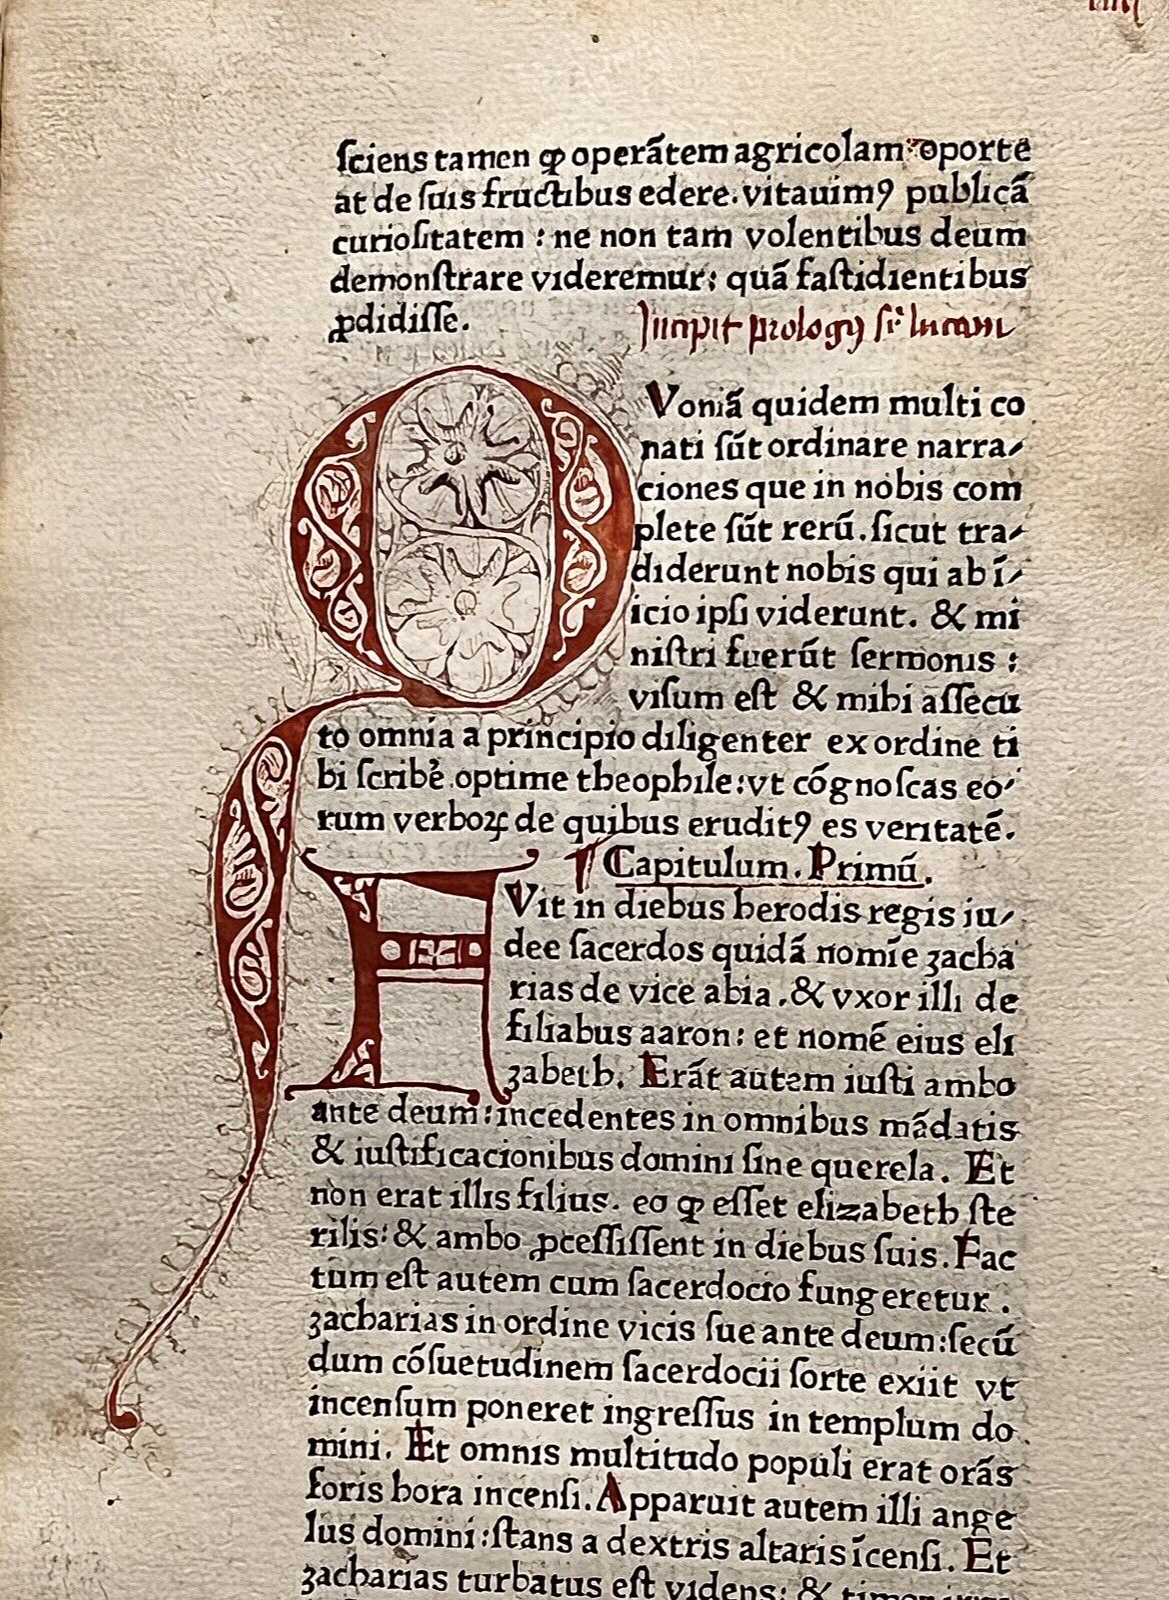 ſciens tamen ꝙ operãtem agricolam: oporte
at de ſuis fructibus edere. vitauimꝰ publicã
curioſitatem : ne non tam volentibus deum
demonſtrare videremur: quã faſtidientibus
ꝓdidiſſe. Incipit prologꝰ
QVoniã quidem multi co
nati ſũt ordinare narra⸗
ciones que in nobis com
plete ſũt rerũ. ſicut tra⸗
diderunt nobis qui ab ĩ⸗
icio ipſi viderunt. & mi
niſtri fuerũt ſermonis :
viſum eſt & mihi aſſecu
to omnia a principio diligenter ex ordine ti
bi ſcribẽ optime theophile: vt cõgnoſcas eo⸗
rum verboꝝ de quibus eruditꝰ es veritatẽ.
¶ Capitulum. Primũ.
FVit in diebus herodis regis iu⸗
dee ſacerdos quidã nomĩe zacha
rias de vice abia. & vxor illi de
filiabus aaron: et nomẽ eius eli
zabeth. Erãt autem iuſti ambo
ante deum: incedentes in omnibus mãdatis
& iuſtificacionibus domini ſine querela. Et
non erat illis filius. eo ꝙ eſſet elizabeth ſte
rilis: & ambo ꝓceſſiſſent in diebus ſuis. Fac
tum eſt autem cum ſacerdocio fungeretur .
zacharias in ordine vicis ſue ante deum: ſecũ
dum cõſuetudinem ſacerdocii ſorte exiit vt
incenſum poneret ingreſſus in templum do
mini. Et omnis multitudo populi erat orãs
foris hora incenſi. Apparuit autem illi ange
lus domini: ſtans a dextris altaris ĩcenſi. Et
zacharias turbatus eſt videns: &